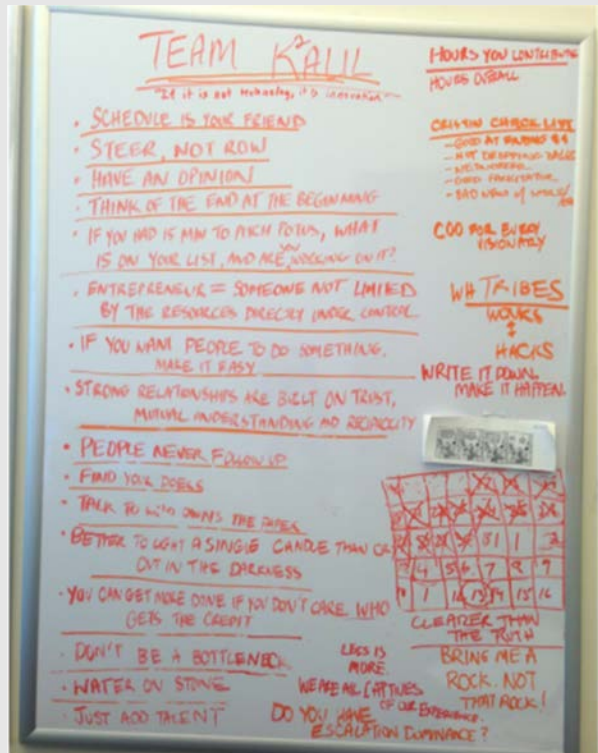 TEAM K²ALIL
"If it is not technology, it is innovation"
• SCHEDULE IS YOUR FRIEND
• STEER, NOT ROW
• HAVE AN OPINION
• THINK OF THE END AT THE BEGINNING
• IF YOU HAD 15 MIN TO PITCH POTUS, WHAT
IS ON YOUR LIST, AND ARE YOU WORKING ON IT?
• ENTREPRENEUR = SOMEONE NOT LIMITED
BY THE RESOURCES DIRECTLY UNDER CONTROL
• IF YOU WANT PEOPLE TO DO SOMETHING,
MAKE IT EASY
• STRONG RELATIONSHIPS ARE BUILT ON TRUST,
MUTUAL UNDERSTANDING AND RECIPROCITY
• PEOPLE NEVER FOLLOW UP
• FIND YOUR DOERS
• TALK TO WHO OWNS THE PAPER
• BETTER TO LIGHT A SINGLE CANDLE THAN
OUT IN THE DARKNESS
• YOU CAN GET MORE DONE IF YOU DON'T CARE WHO
GETS THE CREDIT
• DON'T BE A BOTTLENECK
• WATER ON STONE
• JUST ADD TALENT
HOURS YOU CONTRIBUTE
HOURS OVERALL
CHECK LIST
- GOOD AT FINDING $$
- NOT DROPPING BALLS
- NETWORKER
- GOOD FACILITATOR
COO FOR EVERY
VISIONARY
WH TRIBES
WONKS
↕
HACKS
WRITE IT DOWN
MAKE IT HAPPEN.
31 1 2
4 5 6 7 8 9
1 12 13 14 15 16
CLEARER THAN
THE TRUTH
LESS IS
MORE.
BRING ME A
ROCK. NOT
THAT ROCK!
WE ARE ALL CAPTIVES
OF OUR EXPERIENCE.
DO YOU HAVE
ESCALATION DOMINANCE?